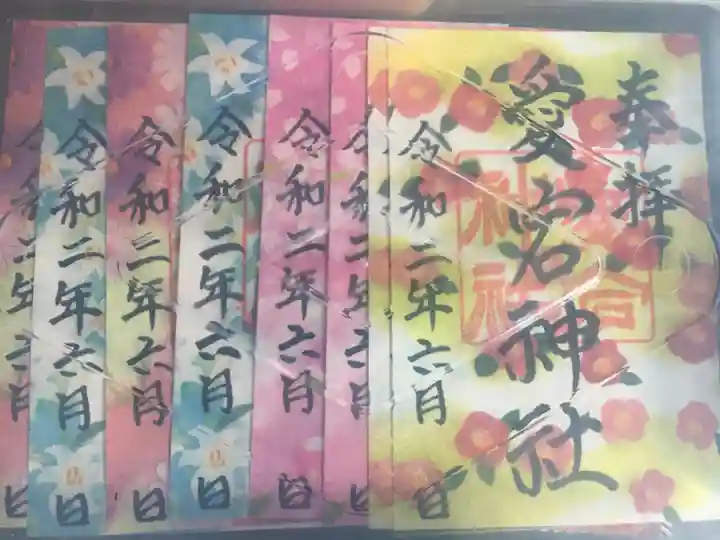 奉拝
愛宕神社
令和二年六月 日
令和二年六月 日
令和二年六月 日
令和二年六月 日
令和二年六月 日
令和二年六月 日
令和二年六月 日